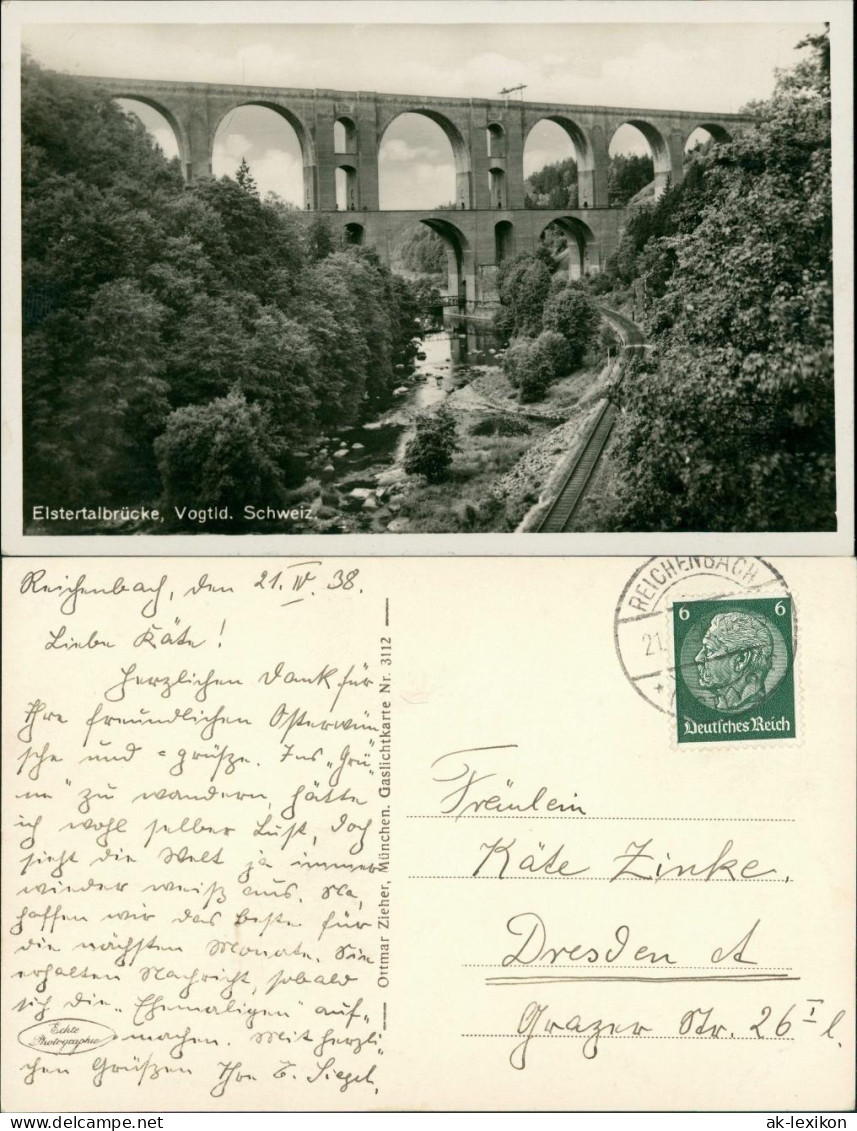 Elstertalbrücke, Vogtld. Schweiz.
Reichenbach, den 21. IV. 38.
Liebe Käte!
Herzlichen Dank für
Ihre freundlichen Osterwün
sche und - grüße. Ins „Grü
ne" zu wandern, hätte
ich wohl selber Lust, doch
sieht die Welt ja immer
wieder weiß aus. Na,
hoffen wir das beste für
die nächsten Monate. Sie
erhalten Nachricht, sobald
sich die „Ehemaligen" auf-
machen. Mit herzli-
chen Grüßen Ihre E. Siegel.
Echte
Photographie
Ottmar Zieher, München. Gaslichtkarte Nr. 3112
REICHENBACH
21.
6 6
Deutsches Reich
Fräulein
Käte Zinke.
Dresden A
Grazer Str. 26 I l.
AK
ak-lexikon.com
ak-lexikon